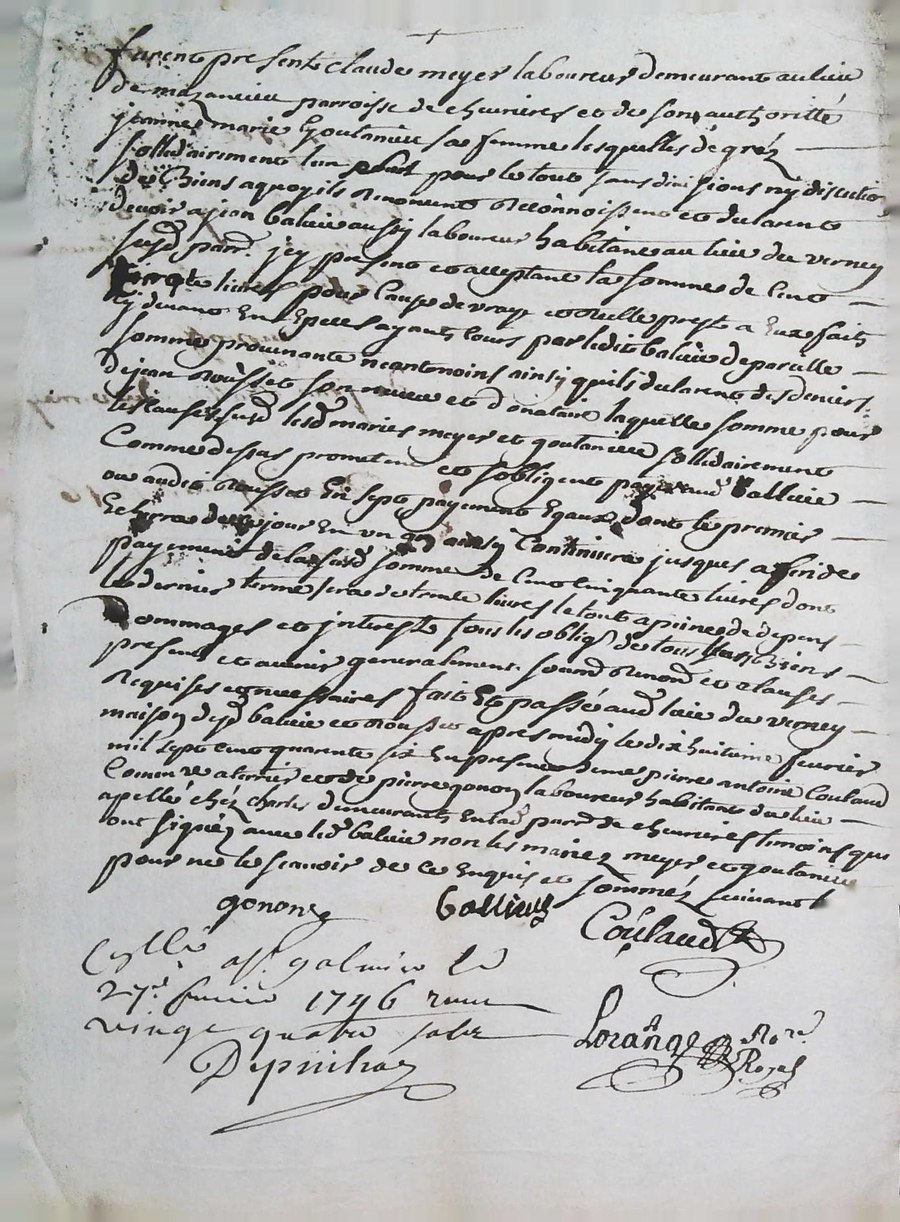 furent present claude meyer laboureur demeurant au lieu
de mazancieu parroisse de chevrieres et de son authoritté
jeanne marie Goutanieu sa femme lesquelles de gréz
sollidairement lun pour le tout sans division ny discution
de Biens aquoy ils Renoncent Reconnoissent et declarent
devoir a jean baleue aussy laboureur habitant au lieu du verney
susd. parr. jcy present et acceptant la somme de Cent
livres pour Cause de vray et Reelle prest a Eux fait
cy devant En Especes ayant Cours par ledit baleue de pareille
somme provenante neantmoins ainsy quils declarent des deniers
de jean Rousset son et donataire laquelle somme pour
les causes susd. lesd. maries meyer et goutanieu sollidairement
Comme dessus promettent et sobligent payer aud. Balleue
ou audit Rousset En sept payements Egaux dont le premier
Echera de ce jour En un an ainsy Continuera jusques a fin de
payement de la susd. somme de Cent Cinquante livres dont
le dernier terme sera de trente livres le tout a peine de depens
Dommages et jnterests sous les oblig. de tous Biens
present et avenir generalement soumd. Renond. et clauses
Requises et necessaires fait Et passé aud. lieu du verney
maison desd. baleue et Rousset apres midy le dix huitieme fevrier
mil sept cent quarente six En presence de me pierre antoine Couland
et de pierre gonon laboureur habitant du lieu
apellé chéz Charles demeurants En lad. parr. de chevrieres temoins qui
ont signéz avec led. baleue non les mariez meyer et goutanieu
pour ne le scavoir de ce Enquis et somméz suivant
gonon Balleue Couland
Cellé a st. galmier le
27e. fevrier 1746 recu
vingt quatre sols
Lorange No.re Royal